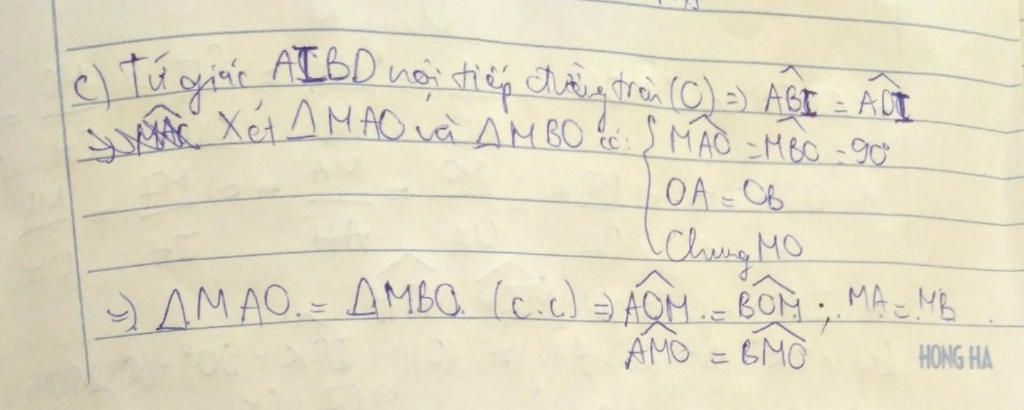 c) Tứ giác AIBD nội tiếp đường tròn (O) => ABI = ADI
=> MAC Xét ΔMAO và ΔMBO có: { MAO = MBO = 90°
OA = OB
Chung MO
=> ΔMAO = ΔMBO (c.c) => AOM = BOM ; MA = MB
AMO = BMO
HONG HA